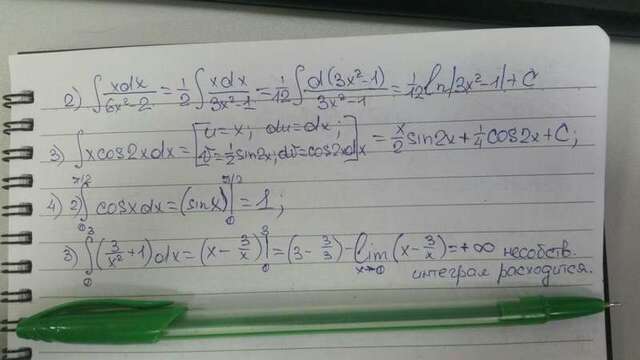 2) ∫ xdx/(6x²-2) = 1/2 ∫ xdx/(3x²-1) = 1/12 ∫ d(3x²-1)/(3x²-1) = 1/12 ln|3x²-1| + C
3) ∫ xcos2xdx = [u=x; du=dx; v=1/2 sin2x; dv=cos2xdx] = x/2 sin2x + 1/4 cos2x + C;
4) 2) ∫₀^(π/2) cosxdx = (sinx)|₀^(π/2) = 1;
3) ∫₀³ (3/x² + 1)dx = (x - 3/x)|₀³ = (3 - 3/3) - lim x→0 (x - 3/x) = +∞ несобств.
интеграл расходится.